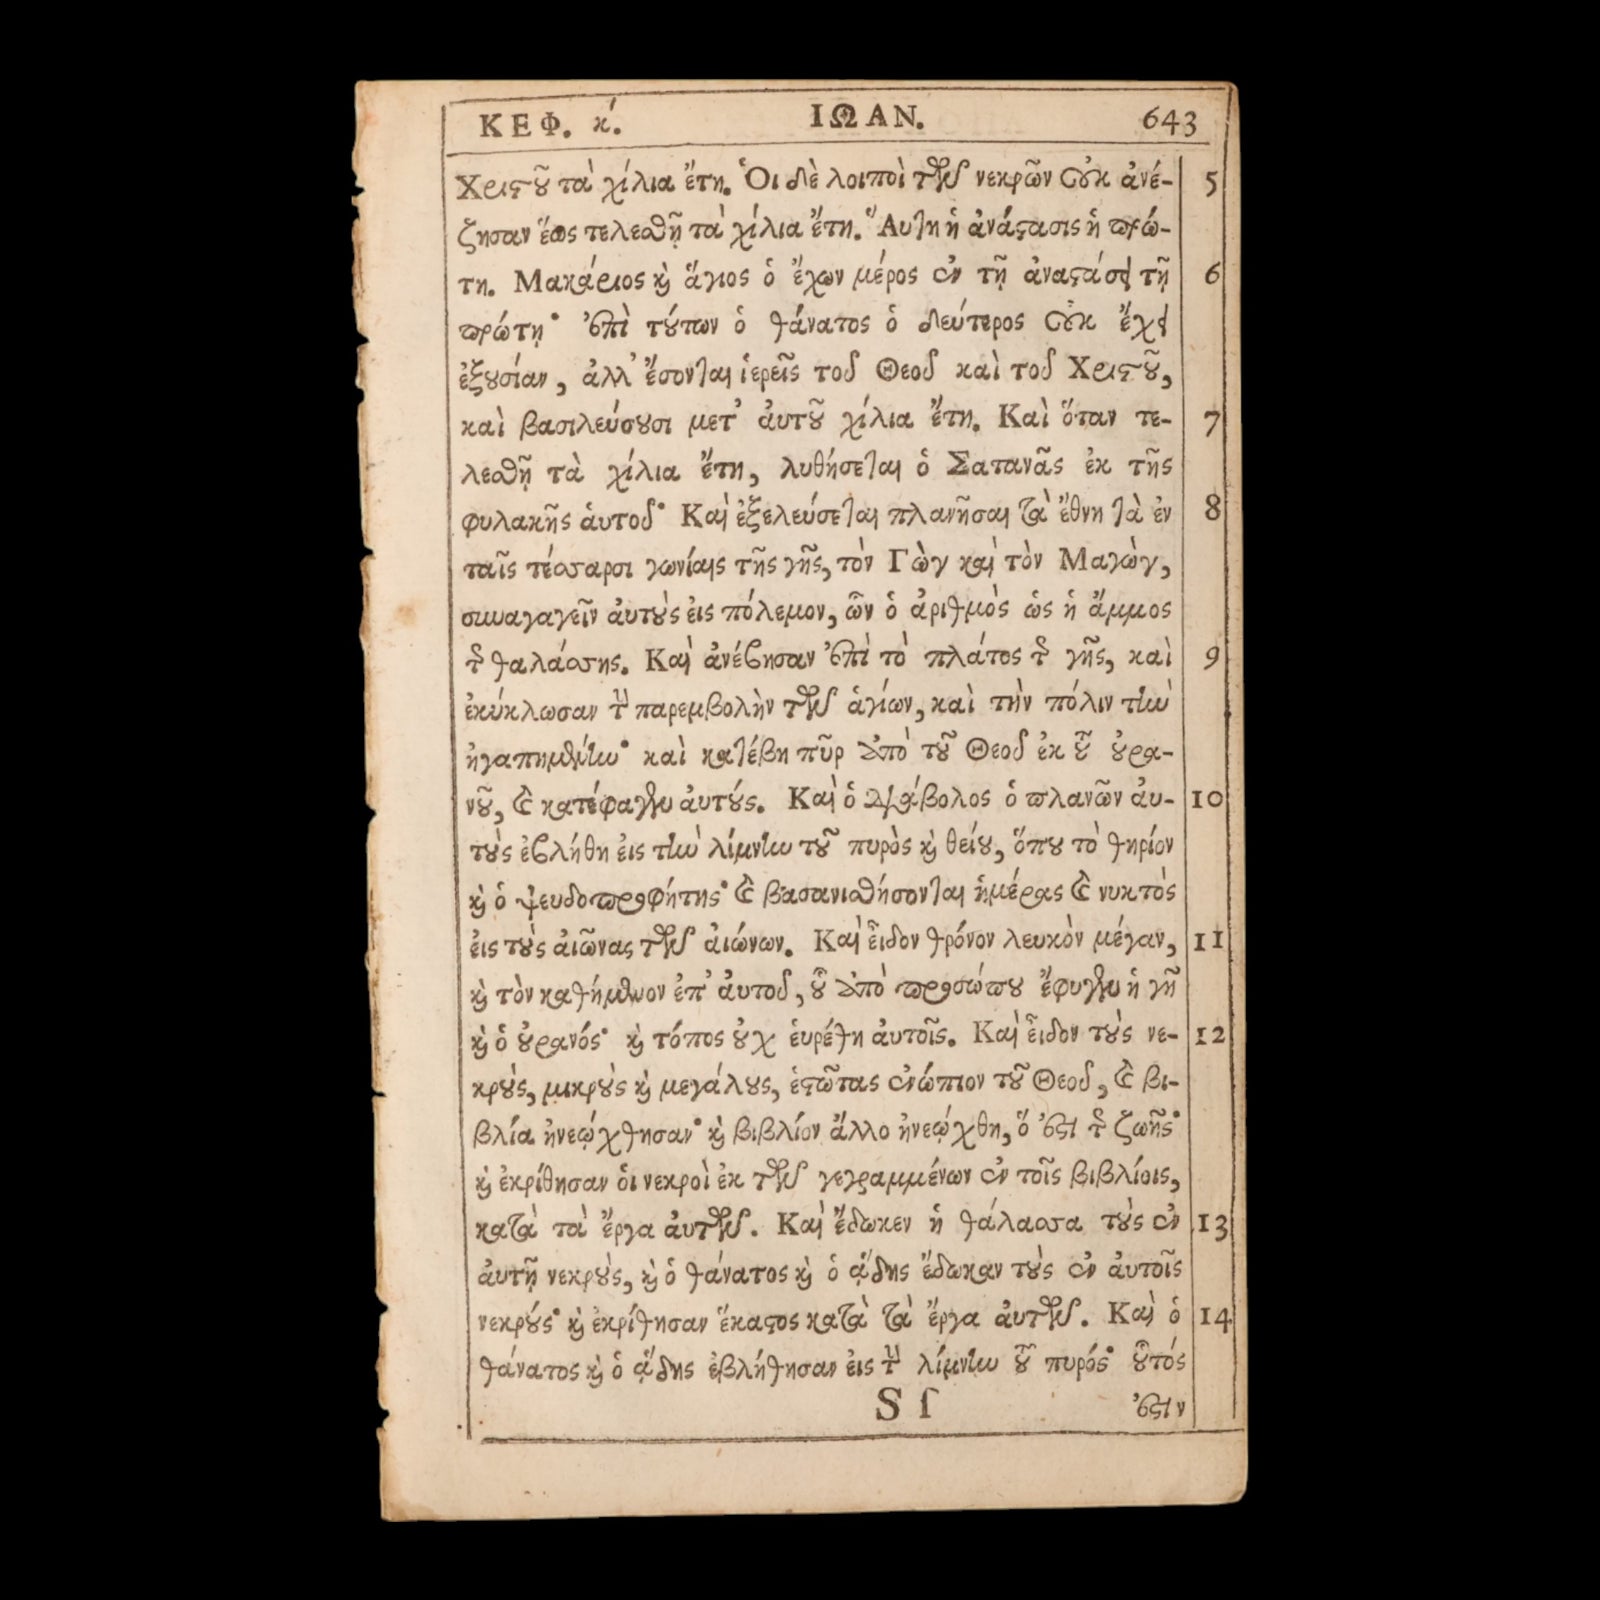 ΚΕΦ. κ'. ΙΩΑΝ. 643
Χριστοῦ τὰ χίλια ἔτη. Ὁι δὲ λοιποὶ τῶν νεκρῶν οὐκ ἀνέ- 5
ζησαν ἕως τελεσθῇ τὰ χίλια ἔτη. Ἅυτη ἡ ἀνάστασις ἡ πρώ-
τη. Μακάριος κὶ ἅγιος ὁ ἔχων μέρος ἐν τῇ ἀναστάσει τῇ 6
πρώτῃ· ἐπὶ τούτων ὁ θάνατος ὁ δεύτερος οὐκ ἔχει
ἐξουσίαν, ἀλλ' ἔσονται ἱερεῖς τοῦ Θεοῦ καὶ τοῦ Χριστοῦ,
καὶ βασιλεύσουσι μετ' ἀυτοῦ χίλια ἔτη. Καὶ ὅταν τε- 7
λεσθῇ τὰ χίλια ἔτη, λυθήσεται ὁ Σατανᾶς ἐκ τῆς
φυλακῆς ἁυτοῦ· Καὶ ἐξελεύσεται πλανῆσαι τὰ ἔθνη τὰ ἐν 8
ταῖς τέσσαρσι γωνίαις τῆς γῆς, τὸν Γὼγ καὶ τὸν Μαγὼγ,
συναγαγεῖν ἀυτοὺς ἐις πόλεμον, ὧν ὁ ἀριθμὸς ὡς ἡ ἄμμος
τῆς θαλάσσης. Καὶ ἀνέβησαν ἐπὶ τὸ πλάτος τῆς γῆς, καὶ 9
ἐκύκλωσαν τὴν παρεμβολὴν τῶν ἁγίων, καὶ τὴν πόλιν τὴν
ἠγαπημένην· καὶ κατέβη πῦρ ἀπὸ τοῦ Θεοῦ ἐκ τοῦ οὐρα-
νοῦ, καὶ κατέφαγεν ἀυτούς. Καὶ ὁ διάβολος ὁ πλανῶν ἀυ- 10
τοὺς ἐβλήθη ἐις τὴν λίμνην τοῦ πυρὸς κὶ θείου, ὅπου τὸ θηρίον
κὶ ὁ ψευδοπροφήτης· καὶ βασανισθήσονται ἡμέρας καὶ νυκτὸς
ἐις τοὺς ἀιῶνας τῶν ἀιώνων. Καὶ ἶειδον θρόνον λευκὸν μέγαν, 11
κὶ τὸν καθήμενον ἐπ' ἀυτοῦ, οὗ ἀπὸ προσώπου ἔφυγεν ἡ γῆ
κὶ ὁ οὐρανός· κὶ τόπος οὐχ ἑυρέθη ἀυτοῖς. Καὶ ἶειδον τοὺς νε- 12
κροὺς, μικροὺς κὶ μεγάλους, ἑστῶτας ἐνώπιον τοῦ Θεοῦ, καὶ βι-
βλία ἠνεῴχθησαν· κὶ βιβλίον ἄλλο ἠνεῴχθη, ὅ ἐστι τῆς ζωῆς·
κὶ ἐκρίθησαν ὁι νεκροὶ ἐκ τῶν γεγραμμένων ἐν τοῖς βιβλίοις,
κατὰ τὰ ἔργα ἀυτῶν. Καὶ ἔδωκεν ἡ θάλασσα τοὺς ἐν 13
ἀυτῇ νεκροὺς, κὶ ὁ θάνατος κὶ ὁ ᾅδης ἔδωκαν τοὺς ἐν ἀυτοῖς
νεκρούς· κὶ ἐκρίθησαν ἕκαστος κατὰ τὰ ἔργα ἀυτῶν. Καὶ ὁ 14
θάνατος κὶ ὁ ᾅδης ἐβλήθησαν ἐις τὴν λίμνην τοῦ πυρός· οὗτός
S ſ ἐστιν